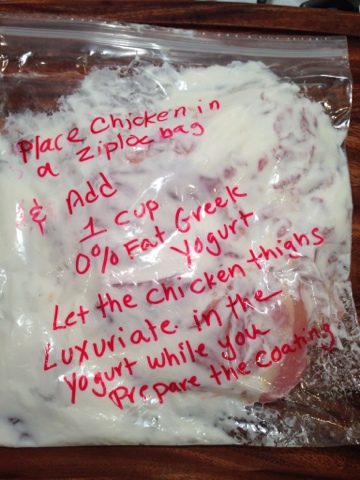 Place Chicken in
a Ziploc bag
& Add
1 cup
0% Fat Greek
Yogurt
Let the chicken thighs
Luxuriate in the
yogurt while you
prepare the coating